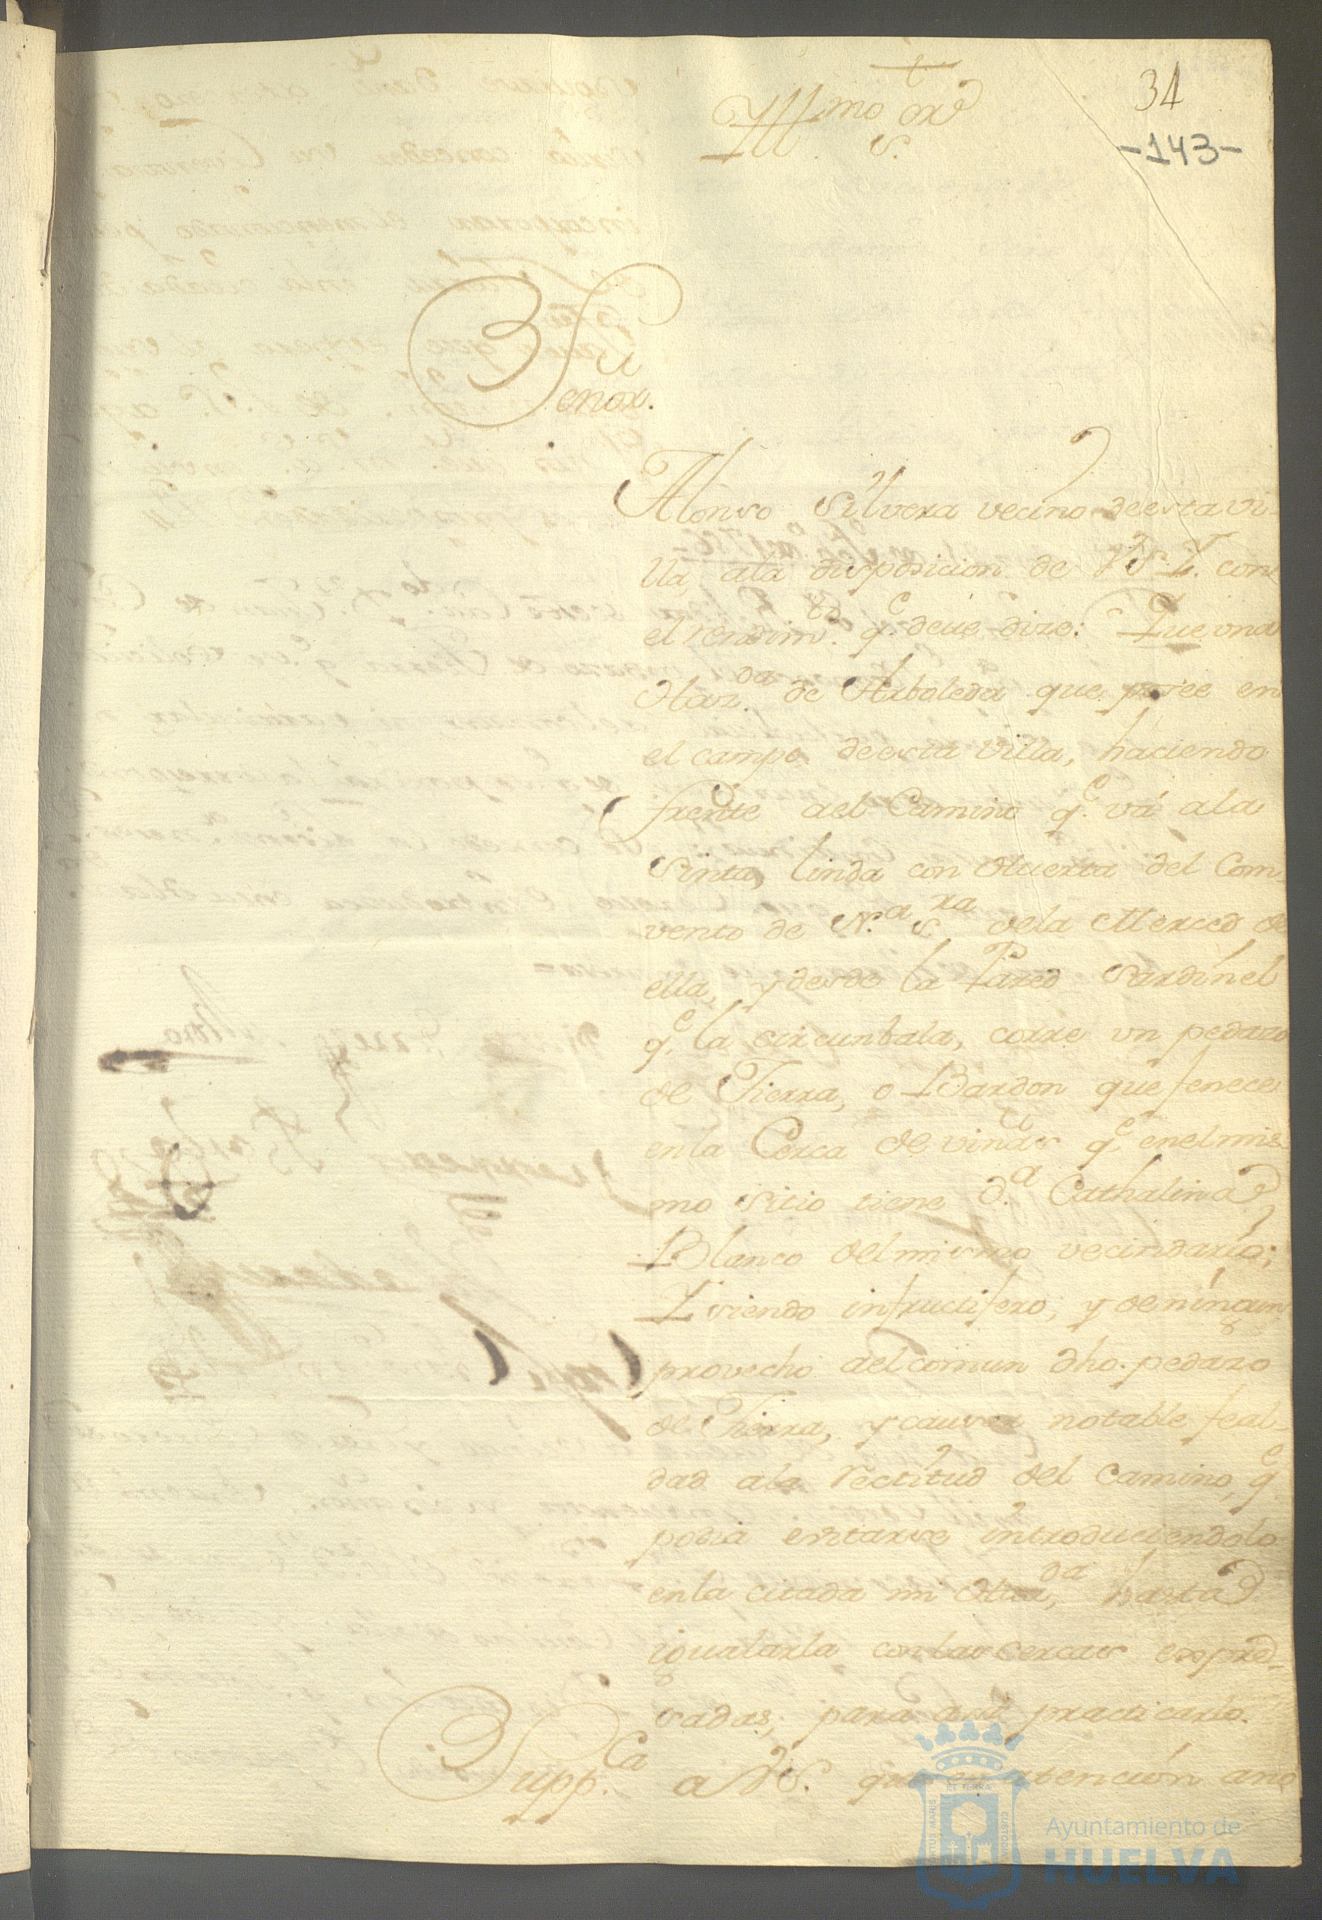 34
-143-
Yllmo Sor
Señor.
Alonso Silvera vecino de esta vi-
lla, ala disposicion de V.S.Y. con
el rendimto. qe. deve dize: Que una
Hazda. de Arboleda que posee en
el campo de esta Villa, haciendo
frente ael Camino qe. vá ala
Sinta, linda con Huerta del Com-
vento de Na. Sra. dela Merced de
ella, y desde la Pared Sardinel
qe. la circunbala, corre un pedazo
de Tierra, o Bardon que fenece
enla Cerca de viñas qe. enel mis-
mo sitio tiene Da. Cathalina
Blanco del mismo vecindario;
Y siendo infructifero, y de ningun
provecho ael comun dho. pedazo
de Tierra, y causar notable feal-
dad ala rectitud del Camino, qe.
podia evitarse introduciendolo
enla citada mi Hazda, hasta
igualarla con las cercas expre-
sadas; para asi practicarlo.
Suppca. a V.S. que en atención a
Ayuntamiento de
HUELVA